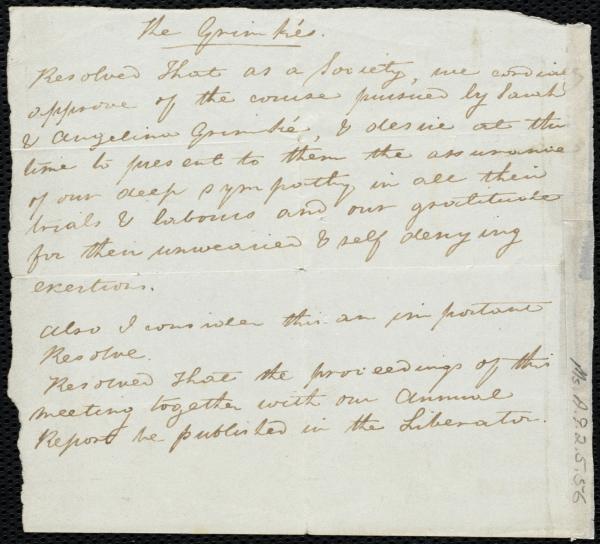 The Grimkés.
Resolved That as a Society, we cordial
approve of the course pursued by Sarah
& Angelina Grimké, & desire at this
time to present to them the assurance
of our deep sympathy in all their
trials & labours and our gratitude
for their unwearied & self denying
exertions.
Also I consider this an important
Resolve.
Resolved That the proceedings of this
meeting together with our Annual
Report be published in the Liberator.
Ms.A.9.2.5.56